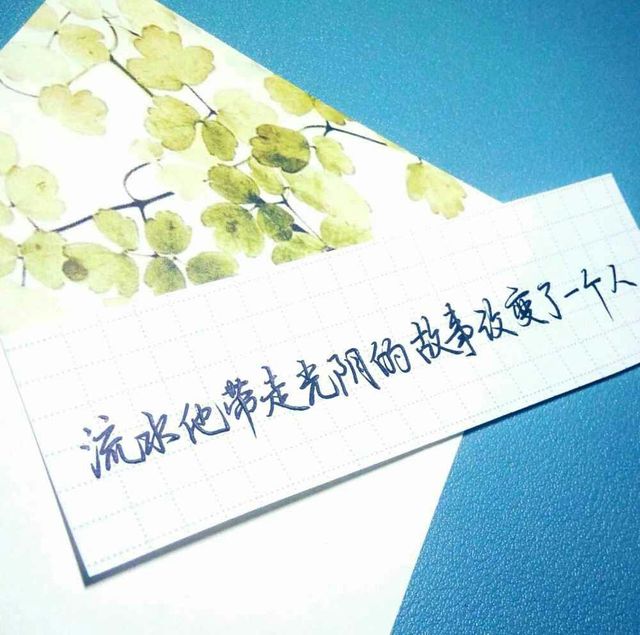 流水他带走光阴的故事改变了一个人